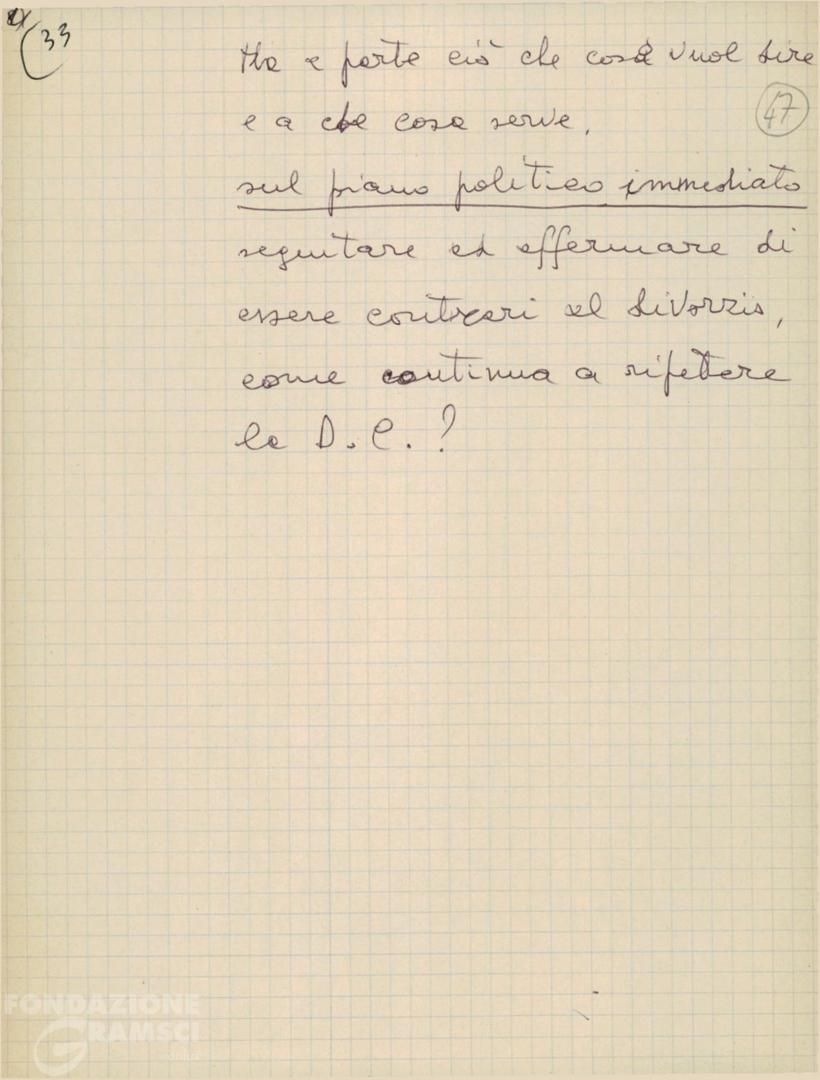 33
Ma a parte ciò che cosa vuol dire
47
e a che cosa serve,
sul piano politico immediato
seguitare ad affermare di
essere contrari al divorzio,
come continua a ripetere
la D.C.?
FONDAZIONE
GRAMSCI